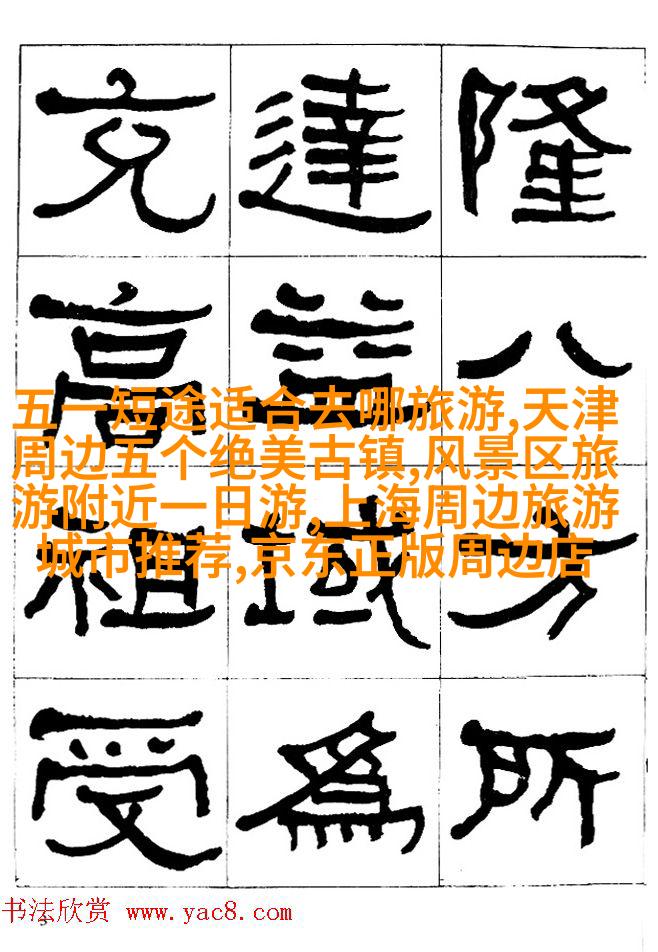 隆八方所
達益域爲
充高祖受
五一短途适合去哪旅游,天津
周边五个绝美古镇,风景区旅
游附近一日游,上海周边旅游
城市推荐,京东正版周边店
书法欣赏 www.yac8.com
3